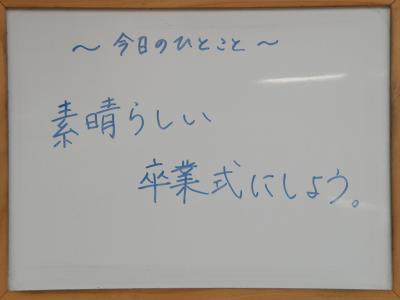 ～今日のひとこと～
素晴らしい
卒業式にしよう。